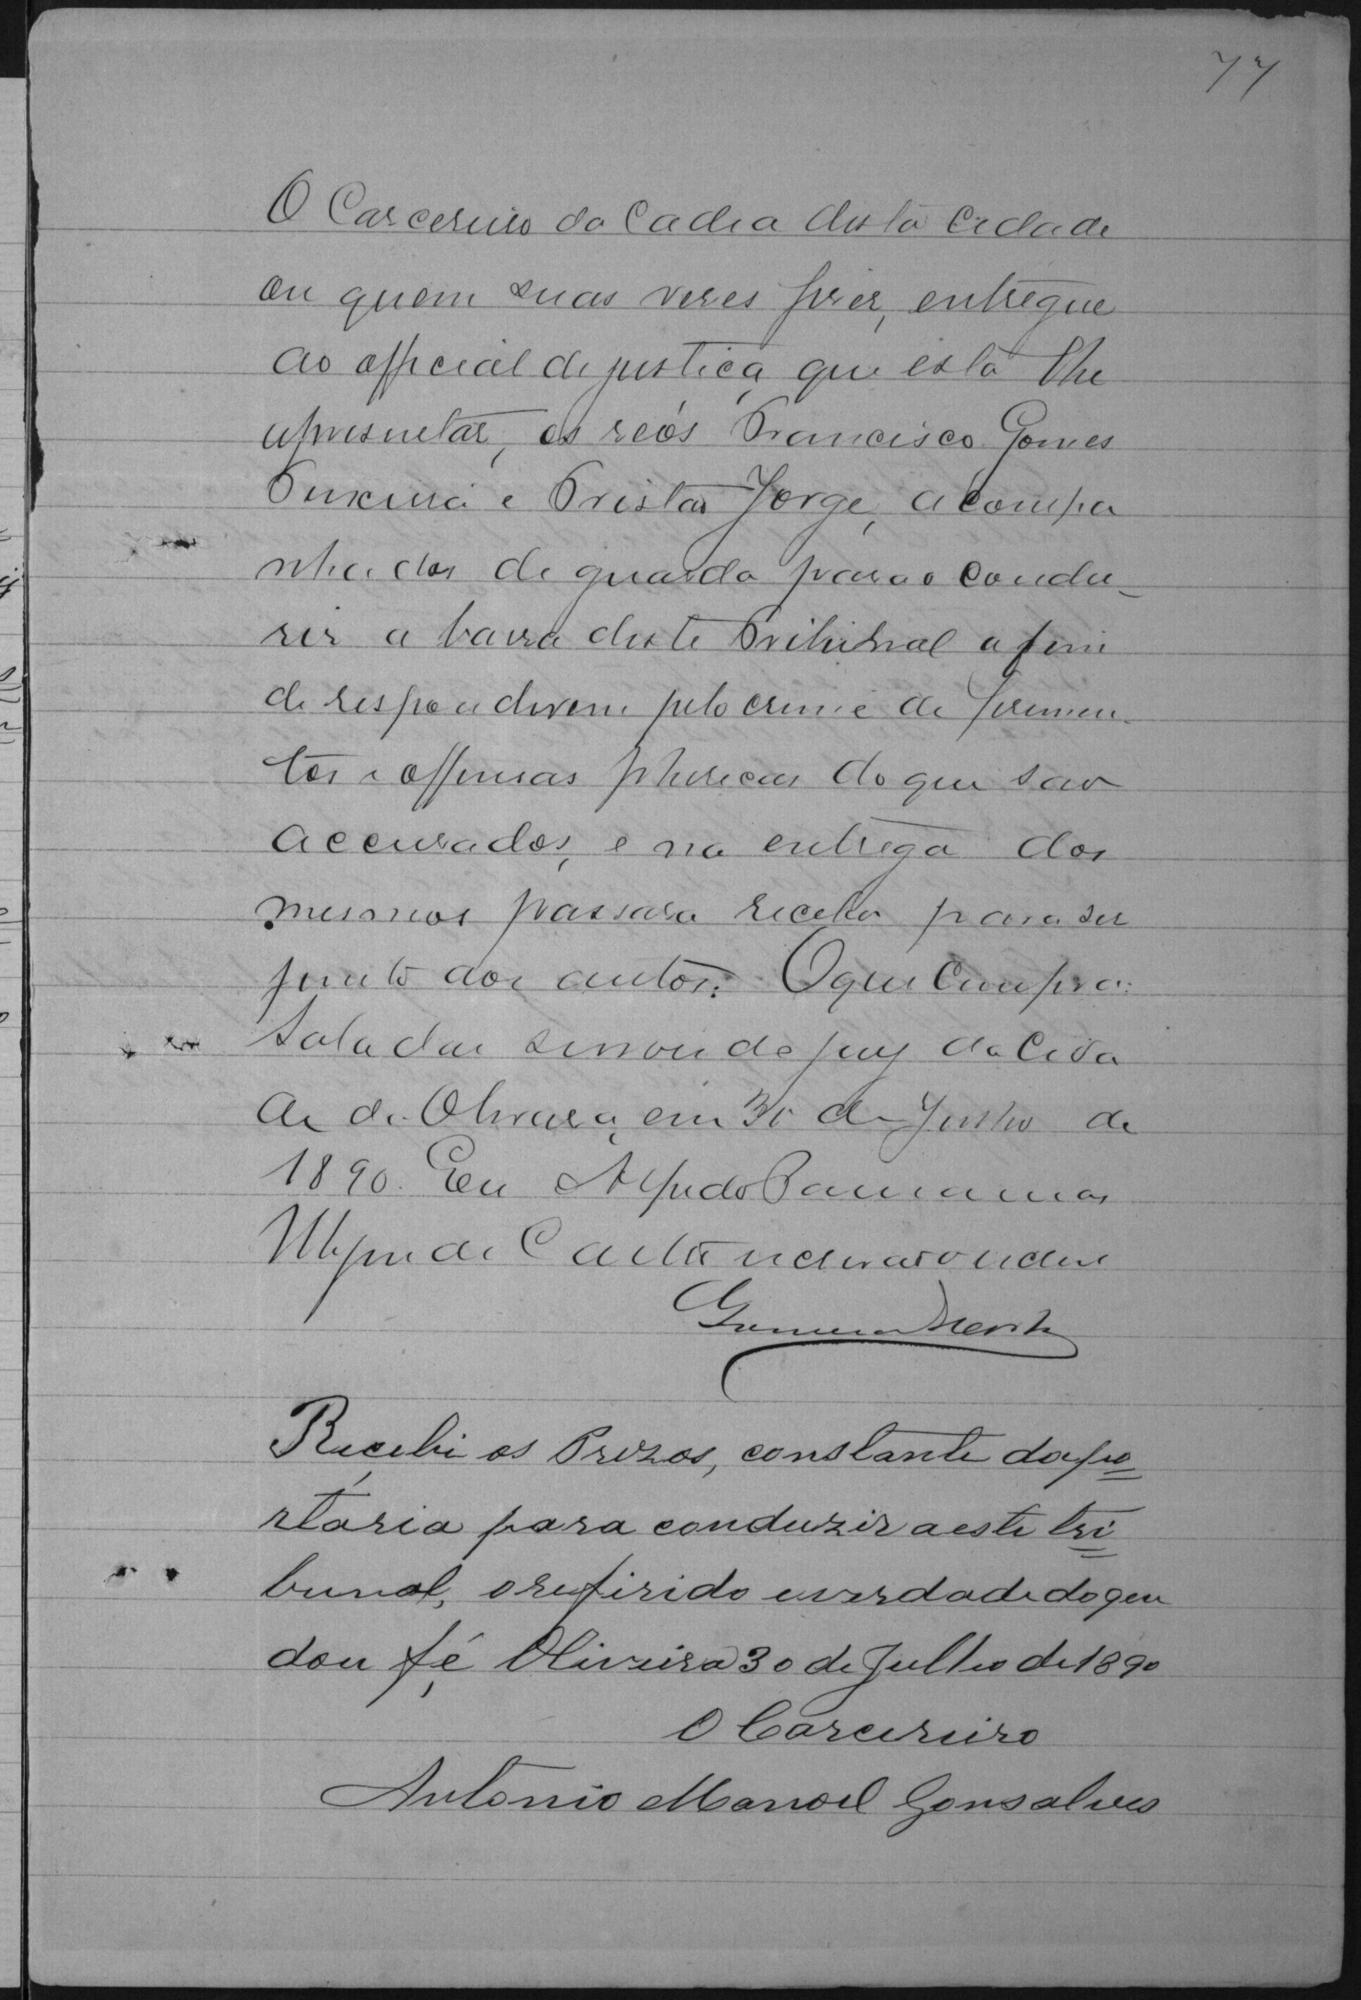 77
O Carcereiro da Cadea desta Cidade
ou quem suas veses fizer, entregue
ao official de justiça, que esta lhe
apresentar, os reós Francisco Gomes
Teixeira e Tristão Jorge, acompa
nhados de guarda para o condu_
sir a barra deste Tribunal a fim
de responderem pelo crime de ferimen-
tos e offensas phisicas do que são
accusados, e na entrega dos
mesmos passara recebo para ser
junto aos autos. O que cumpra.
Sala das sessoes do jury da Cida
de de Oliveira, em 30 de Julho de
1890. Eu Alfredo
de
Recebi os Prezos, constante da po=
rtaria para conduzir a este tri=
bunal, o refirido e verdade do que
dou fé Oliveira 30 de Julho de 1890
O Carcereiro
Antonio Manoel Gonsalves